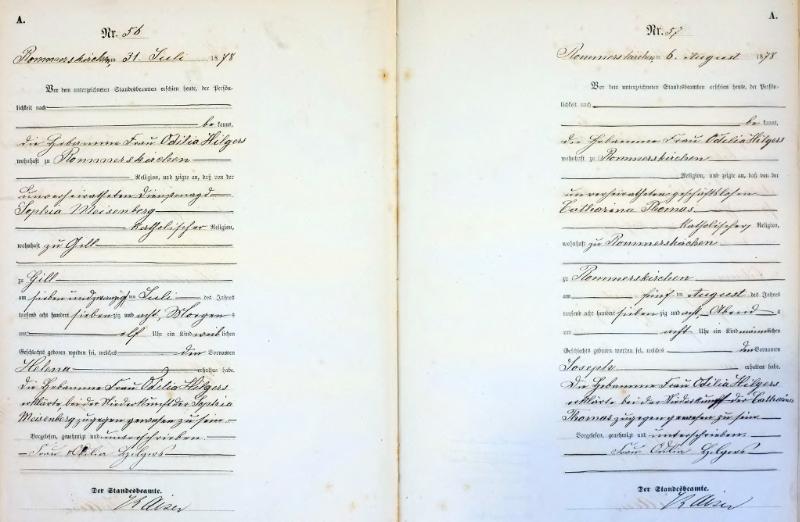 A.
Nr. 56
Rommerskirchen, 31 Juli 1878
Vor dem unterzeichneten Standesbeamten erschien heute, der Persön-
lichkeit nach
be kannt,
die Hebamme Frau Odilia Hilgers
wohnhaft zu Rommerskirchen
Religion, und zeigte an, daß von der
unverheiratheten Dienstmagd
Sophia Meisenberg
katholischer Religion,
wohnhaft zu Gill
zu Gill
am sieben und zwanzig ten Juli des Jahres
tausend acht hundert sieben zig und acht, Morgens
um elf Uhr ein Kind weib lichen
Geschlechts geboren worden sei, welches den Vornamen
Helena erhalten habe.
die Hebamme Frau Odilia Hilgers
erklärte, bei der Niederkunft der Sophia
Meisenberg zugegen gewesen zu sein
Vorgelesen, genehmigt und unterschrieben.
Frau Odilia Hilgers
Der Standesbeamte.
A.
Nr. 57
Rommerskirchen, 6. August 1878
Vor dem unterzeichneten Standesbeamten erschien heute, der Persön-
lichkeit nach
be kannt,
die Hebamme Frau Odilia Hilgers
wohnhaft zu Rommerskirchen
Religion, und zeigte an, daß von der
unverheiratheten geschäftslosen
Catharina Thomas
katholischer Religion,
wohnhaft zu Rommerskirchen
zu Rommerskirchen
am fünf ten August des Jahres
tausend acht hundert sieben zig und acht, Abends
um acht Uhr ein Kind männlichen
Geschlechts geboren worden sei, welches den Vornamen
Joseph erhalten habe.
Die Hebamme Frau Odilia Hilgers
erklärte bei der Niederkunft der Catharina
Thomas zugegen gewesen zu sein
Vorgelesen, genehmigt und unterschrieben
Frau Odilia Hilgers
Der Standesbeamte.